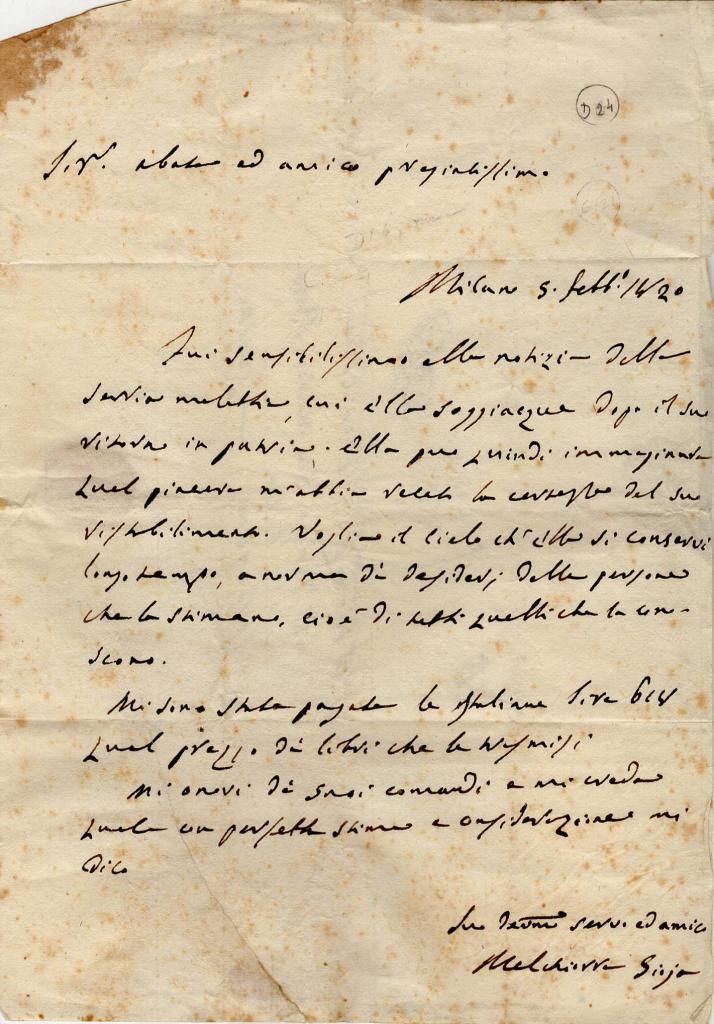 D 24
Sigr. abate ed amico pregiatissimo
Milano 5. febb.° 1820
Fui sensibilissimo alla notizia della
seria malattia, cui Ella soggiacque dopo il suo
ritorno in patria. Ella può quindi immaginare
qual piacere m'abbia recato la certezza del suo
ristabilimento. Voglia il cielo ch'Ella si conservi
lungo tempo, a norma de' desiderj delle persone
che la stimano, cioè di tutti quelli che la cono-
scono.
Mi sono state pagate le italiane lire
qual prezzo de' libri che le trasmisi
Mi onori de' suoi comandi e mi creda
quale con perfetta stima e considerazione mi
dico
Suo devmo servo ed amico
Melchiorre Gioja